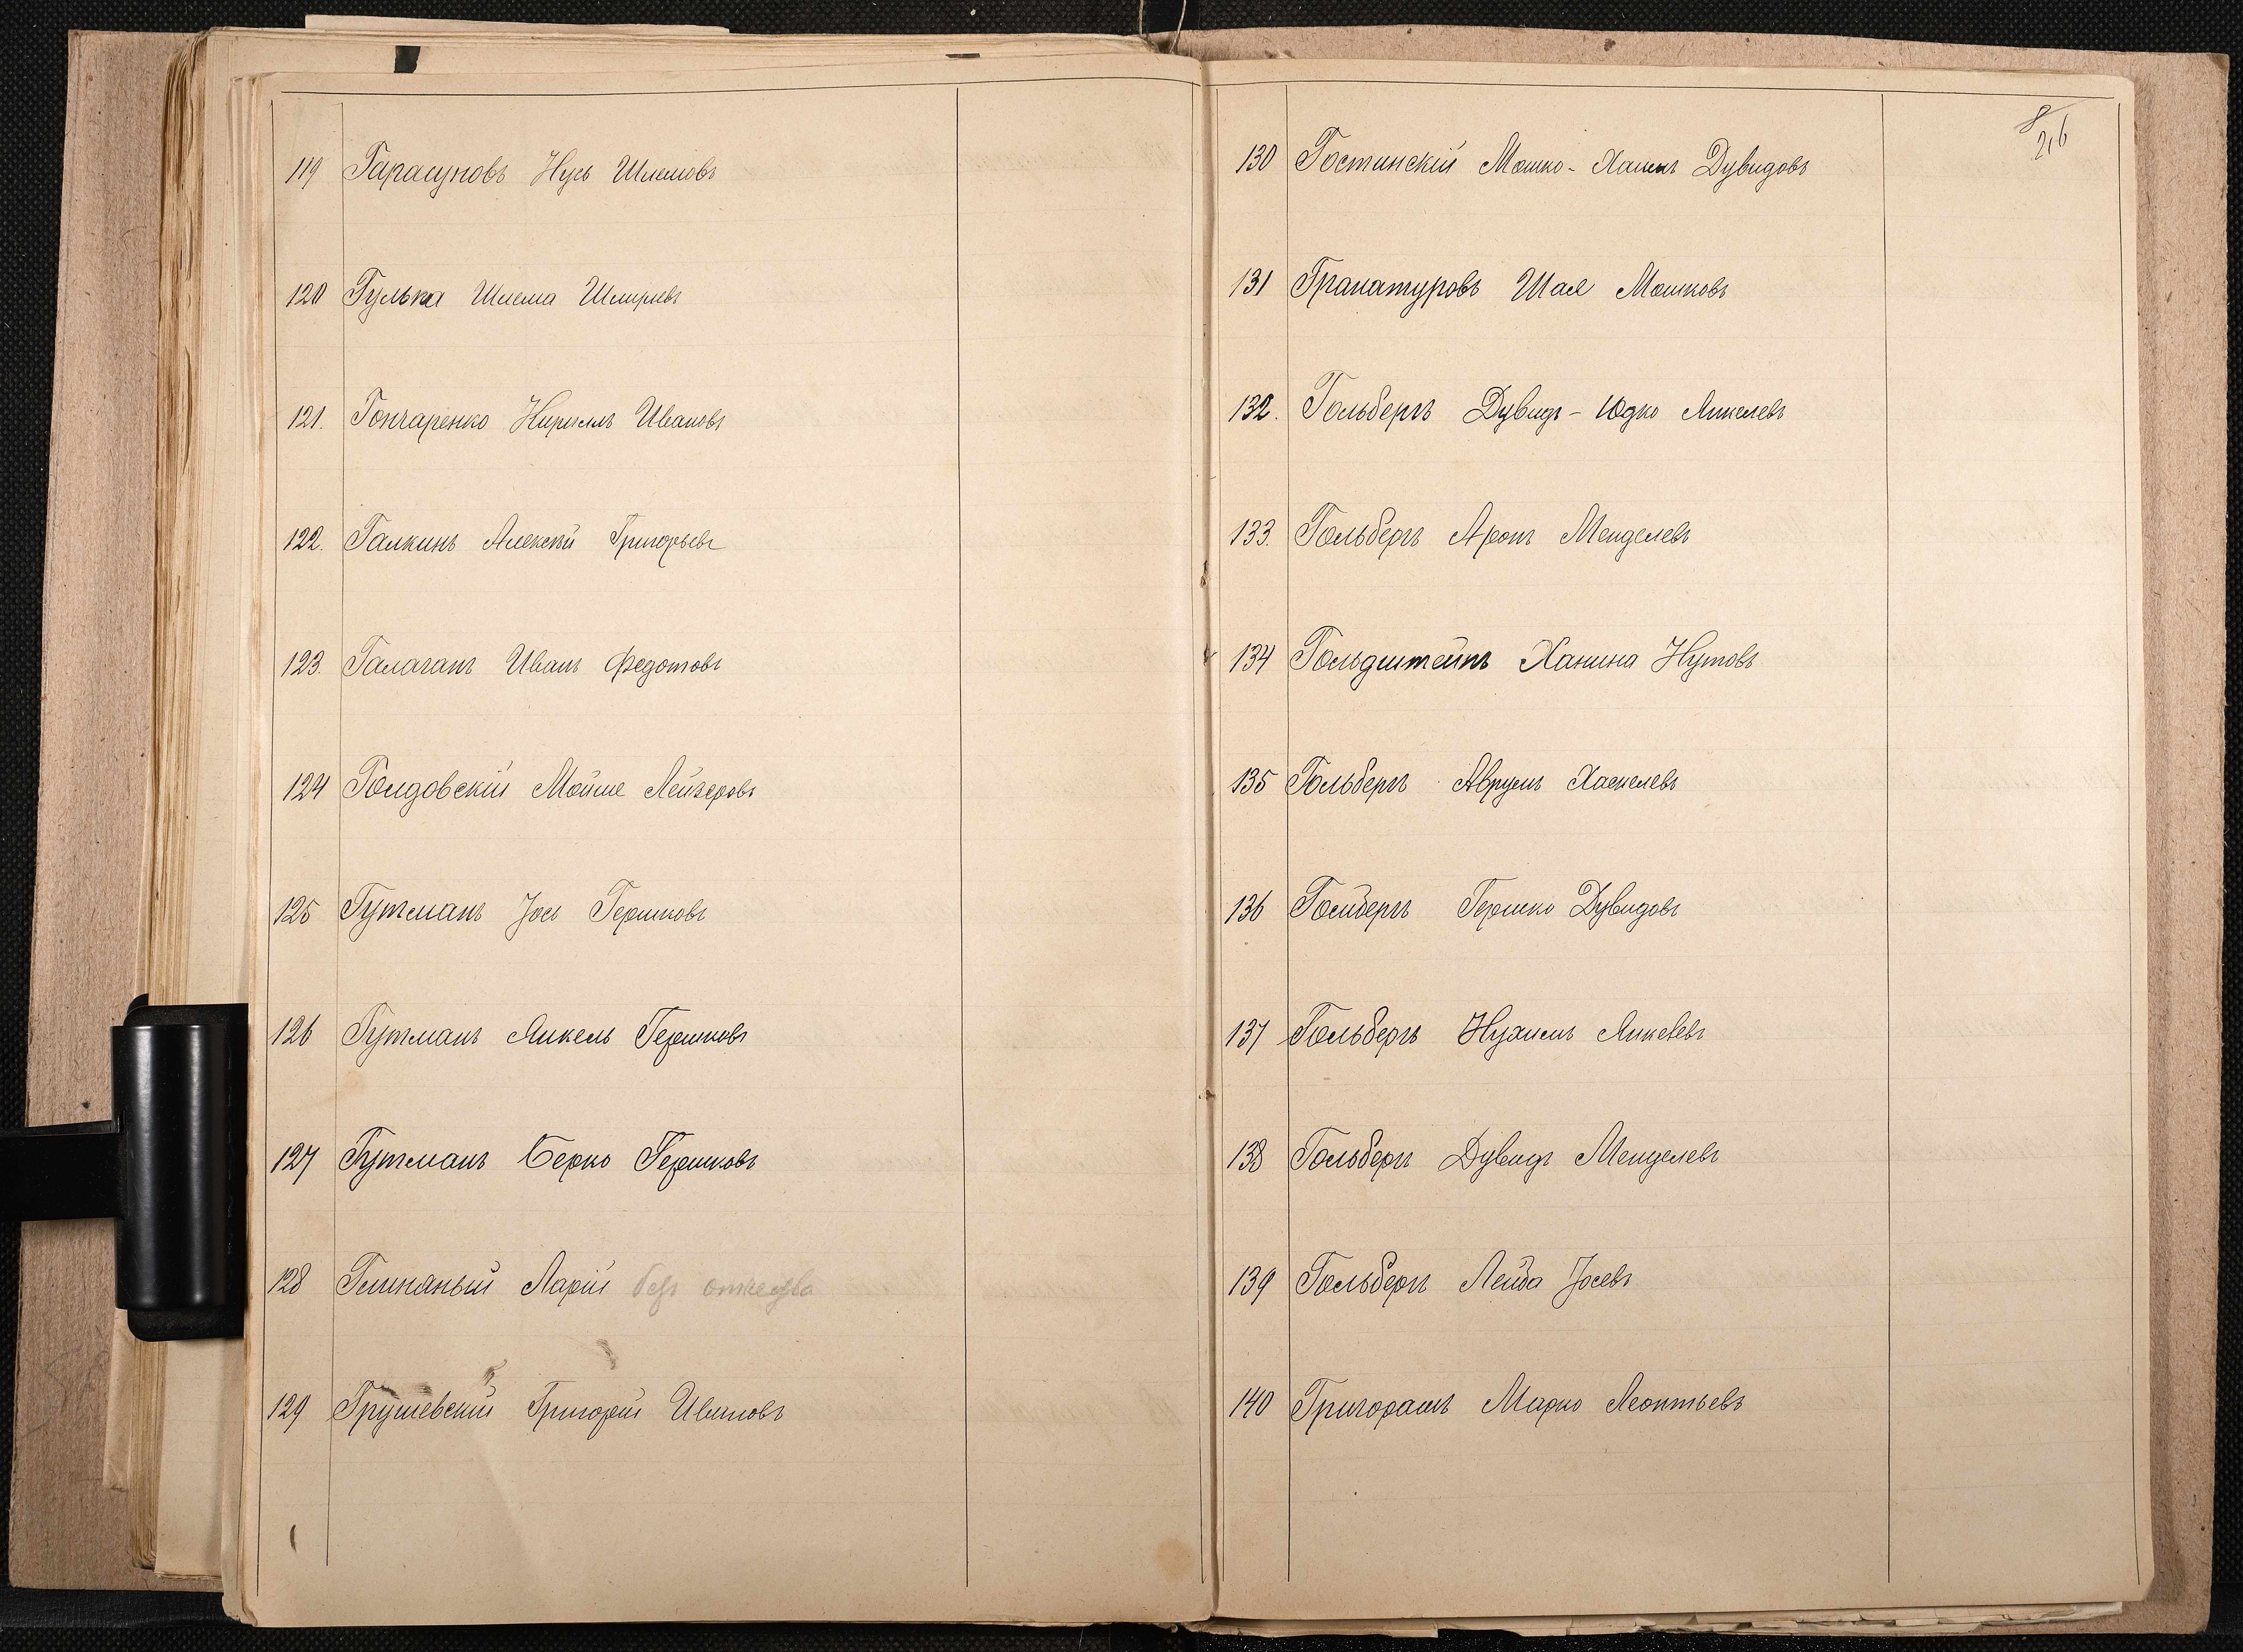 119 Гарасуновъ Нусь Шлемовъ
120 Гулька Шлема Шмулевъ
121. Гончаренко Кириллъ Ивановъ
122. Галкинъ Алексѣй Григорьевъ
123. Галаганъ Иванъ Федотовъ
124 Голдовскій Мойше Лейзеровъ
125 Гутманъ Іось Гершковъ
126 Гутманъ Янкель Гершковъ
127 Гутманъ Берко Гершковъ
128 Глиняный Ларій безъ отчества
129 Грушевскій Григорій Ивановъ
8
216
130 Гостинскій Мошко-Хаимъ Дувидовъ
131 Гранатуровъ Шая Мошковъ
132. Гольбергъ Дувидъ-Юдко Янкелевъ
133. Гольбергъ Аронъ Менделевъ
134 Гольдштейнъ Ханина Нутовъ
135 Гольбергъ Аврумъ Хаскелевъ
136 Гольбергъ Гершко Дувидовъ
137 Гольбергъ Нухимъ Янкелевъ
138 Гольбергъ Дувидъ Менделевъ
139 Гольбергъ Лейба Іосевъ
140 Григорашъ Марко Леонтьевъ